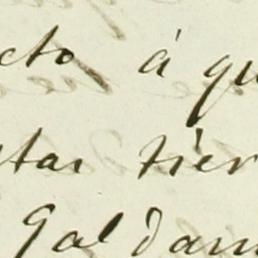 cto á qu
star tier
Galdam